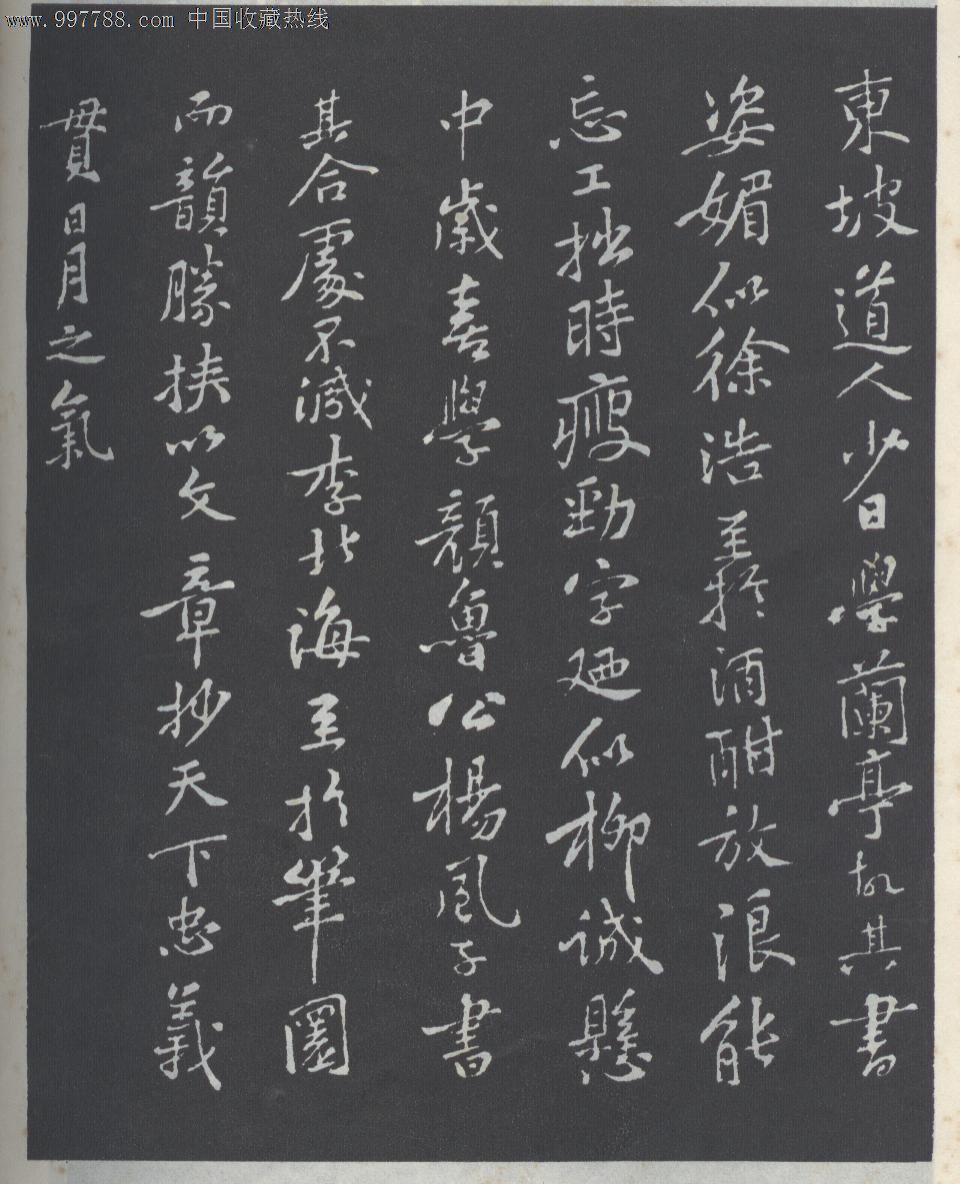 www.997788.com 中国收藏热线
東坡道人少日學蘭亭故其書
姿媚似徐浩至於酒酣放浪能
忘工拙時瘦勁字迺似柳誠懸
中歲喜學顏魯公楊風子書
其合處不減李北海至於筆圜
而韻勝挾以文章抄天下忠義
貫日月之氣